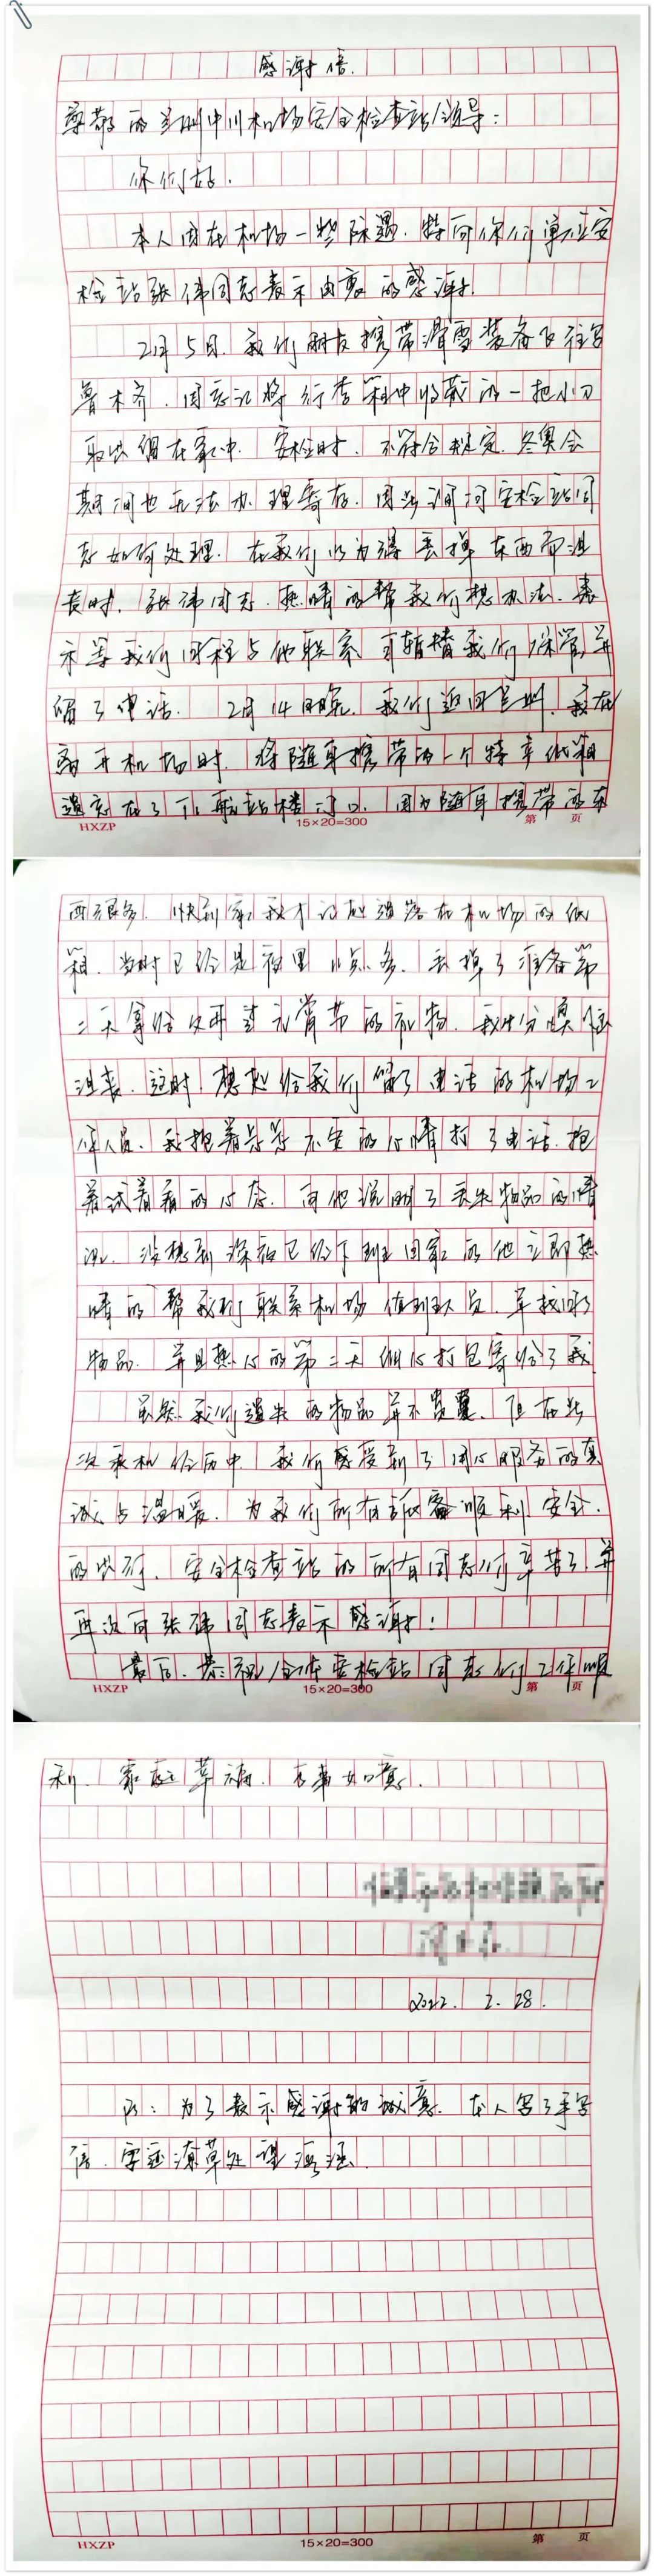 感谢信.
尊敬的兰州中川机场安全检查站领导:
你们好.
本人因在机场一些际遇.特向你们单位安
检站张伟同志表示由衷的感谢!
2月5日.我们朋友携带滑雪装备飞往乌
鲁木齐.因忘记将行李箱中收藏的一把小刀
取出留在家中.安检时.不符合规定.冬奥会
期间也无法办理寄存.因此询问安检站同
志如何处理.在我们以为得丢掉东西而沮
丧时.张伟同志.热情的帮我们想办法.表
示等我们回程与他联系.可暂替我们保管.并
留了电话.2月14日晚.我们返回兰州.我在
离开机场时.将随身携带的一个特产纸箱
遗忘在了T1航站楼门口.因为随身携带的东
西很多.快到家我才记起遗落在机场的纸
箱.当时已经是夜里11点多.丢掉了准备第
二天拿给父母过元宵节的礼物.我十分懊恼
沮丧.这时.想起给我们留了电话的机场工
作人员.我抱着忐忑不安的心情打了电话.抱
着试着看的心态.向他说明了丢失物品的情
况.没想到深夜已经下班回家的他立即热
情的帮我们联系机场值班队员.寻找回了
物品.并且热心的第二天细心打包寄给了我
虽然我们遗失的物品并不贵重.但在此
次乘机经历中.我们感受到了用心服务的真
诚与温暖.为我们所有旅客顺利.安全.
的出行.安全检查站的所有同志们辛苦了.并
再次向张伟同志表示感谢!
最后.恭祝全体安检站同志们工作顺
利.家庭幸福.万事如意.
2022.2.28.
PS:为了表示感谢的诚意.本人写了手写
信.字迹潦草处请海涵.
HXZP 15×20=300 第 页
HXZP 15×20=300 第 页
HXZP 15×20=300 第 页